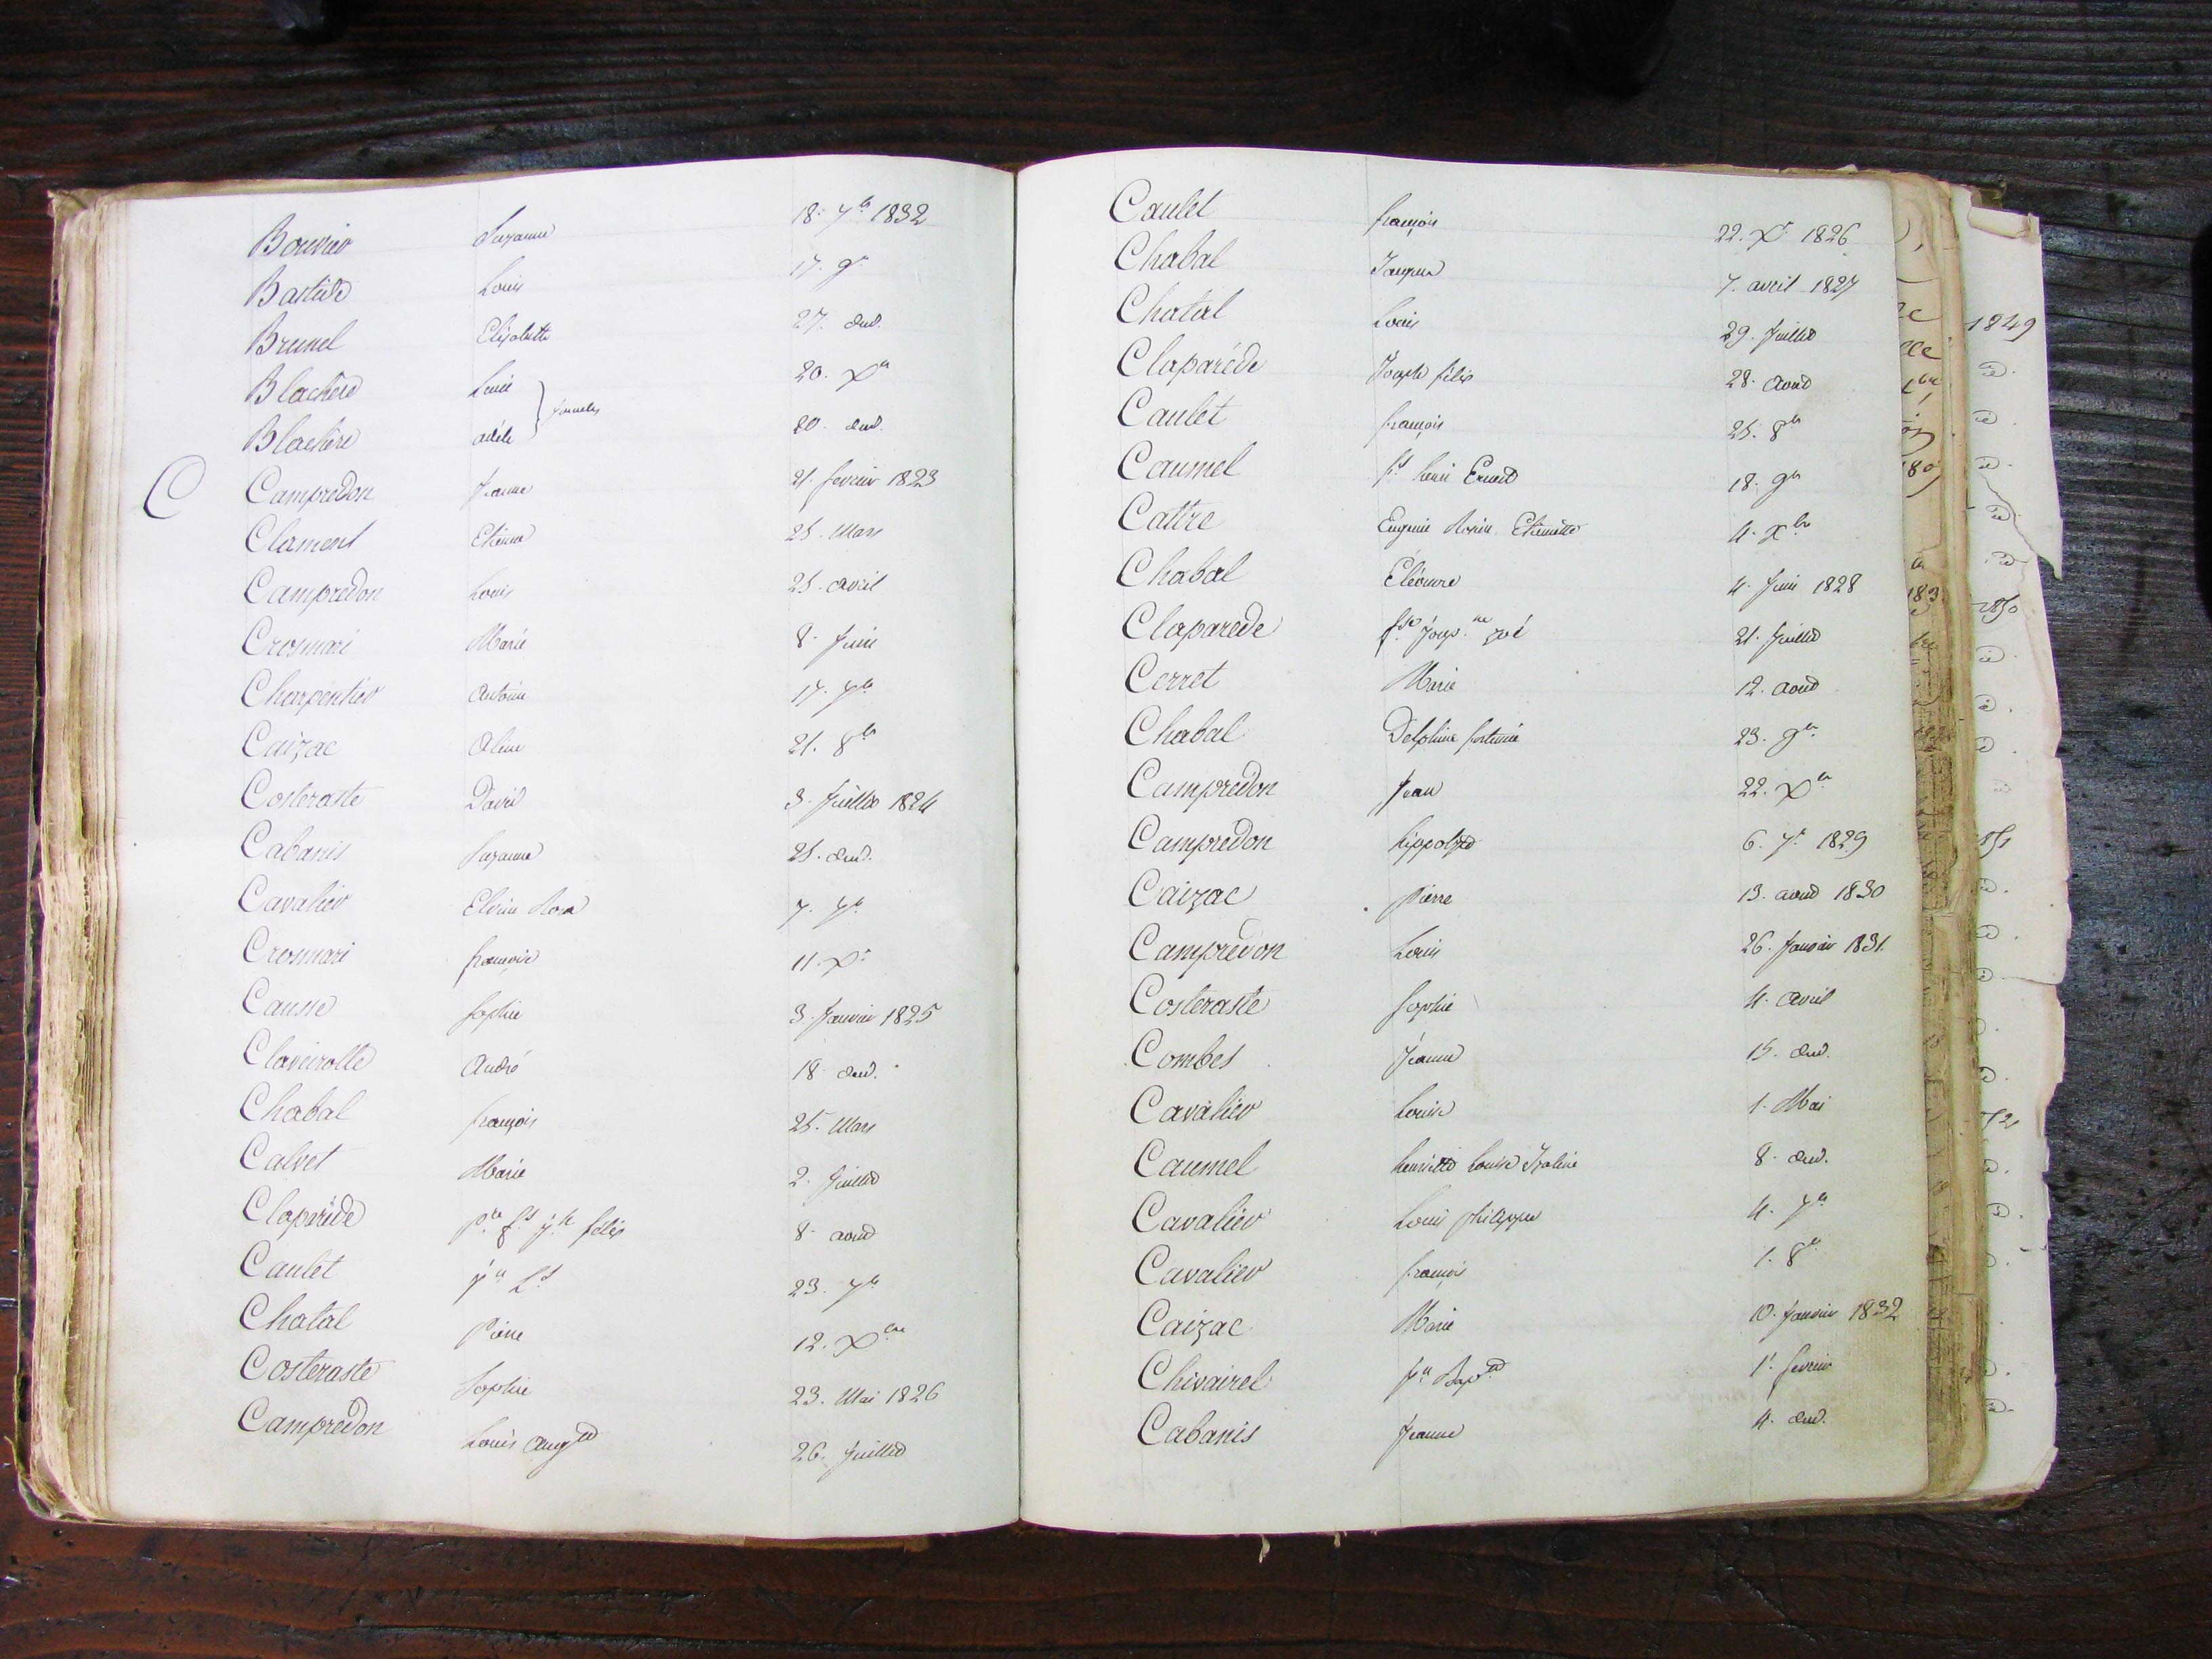 Bouvier Suzanne 18. 7bre 1832
Bastide Louis 17. 9r
Brunel Elizabeth 27. dud.
Blachère Louise 20. Xre
jumelles
Blachère adèle 20. dud.
C
Campredon Jeanne 21. fevrier 1823
Clament Etienne 25. Mars
Campredon Louis 25. avril
Crosmari Marie 8. Juin
Charpentier Antoine 17. 7bre
Caizac Aline 21. 8bre
Costeraste David 3. Juillet 1824
Cabanis Suzanne 25. dud.
Cavalier Elvine Rosa 7. 7bre
Crosmari françoise 11. Xr
Causse Sophie 3. Janvier 1825
Claveirolle André 18 dud.
Chabal françois 25. Mars
Calvet Marie 2. Juillet
Claparède Pre fs jh félix 8. aout
Caulet jn Ls 23. 7bre
Chatal Pierre 12. Xbre
Costeraste Sophie 23. Mai 1826
Campredon Louis Augte 26. Juillet
Caulet françois 22. Xr 1826
Chabal Jacques 7. avril 1827
Chatal Louis 29. Juillet
Claparède Joseph félix 28. aout
Caulet françois 25. 8bre
Caumel fs henri Ernest 18. 9bre
Cattre Eugenie Rosine Etiennette 4. Xbre
Chabal Éléonore 4. Juin 1828
Claparede fse Josepne zoé 21. Juillet
Cerret Marie 12. aout
Chabal Delphine fortunée 23. 9bre
Campredon Jean 22. Xre
Campredon hippolyte 6. 7r 1829
Caizac Pierre 13. aout 1830
Campredon Louis 26. Janvier 1831.
Costeraste Sophie 4. Avril
Combes Jeanne 15. dud.
Cavalier Louise 1. Mai
Caumel henriette Louise Izaline 8. dud.
Cavalier Louis Philippe 4. 7re
Cavalier françois 1. 8r
Caizac Marie 10. Janvier 1832
Chivairel jn Bapte 1r fevrier
Cabanis Jeanne 4. dud.
1849